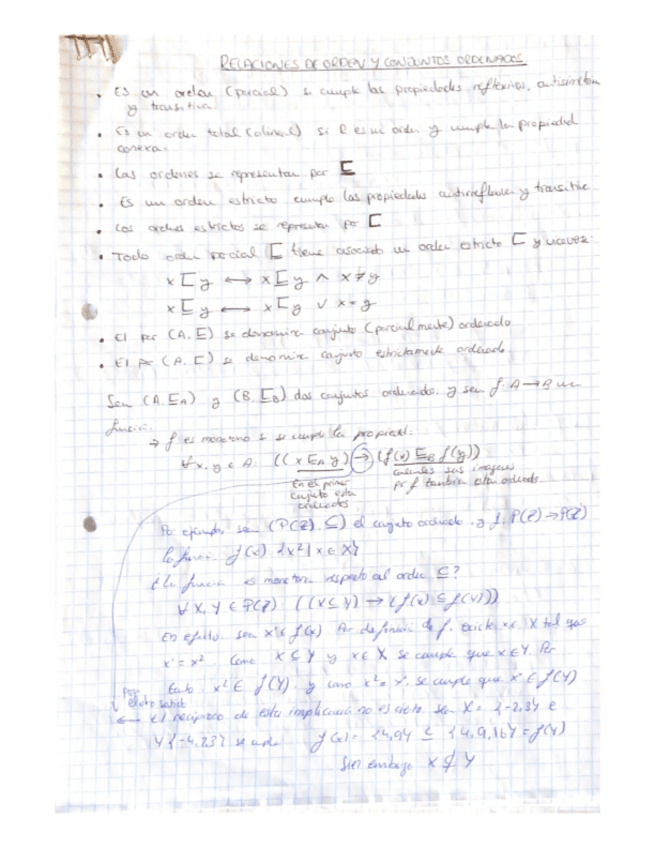 RELACIONES DE ORDEN Y CONJUNTOS ORDENADOS
• Es un orden (parcial) si cumple las propiedades reflexiva, antisimétrica
y transitiva
• Es un orden total (o lineal) si R es un orden y cumple la propiedad
conexa.
• Las ordenes se representan por ⊑
• Es un orden estricto cumple las propiedades antirreflexiva y transitiva
• Los ordenes estrictos se representan por ⊏
• Todo orden parcial ⊑ tiene asociado un orden estricto ⊏ y viceversa:
x ⊏ y ⟷ x ⊑ y ∧ x ≠ y
x ⊑ y ⟷ x ⊏ y ∨ x = y
• El par (A, ⊑) se denomina conjunto (parcialmente) ordenado
• El par (A, ⊏) se denomina conjunto estrictamente ordenado
Sean (A, ⊑A) y (B, ⊑B) dos conjuntos ordenados. y sea f: A → B una
función.
→ f es monótona si se cumple la propiedad:
∀x, y ∈ A: ((x ⊑A y) → (f(x) ⊑B f(y))
En el primer
conjunto están
ordenados
sus imágenes
por f también están ordenadas
Por ejemplo, sean (P(Z), ⊆) el conjunto ordenado y f: P(Z) → P(Z)
la función f(x) {x² | x ∈ X}
¿La función es monótona respecto al orden ⊆?
∀ X, Y ∈ P(Z) ((X ⊆ Y) → (f(x) ⊆ f(Y)))
En efecto, sea x' ∈ f(x) Por definición de f. Existe x ∈ X tal que
x' = x² Como X ⊆ Y y x ∈ X se cumple que x ∈ Y. Por
tanto x² ∈ f(Y) y como x² = x', se cumple que x' ∈ f(Y)
por
el otro
← El recíproco de esta implicación no es cierto sean X = {-2,3} e
Y {-4,2,3} se cumple f(x) = {4,9} ⊆ {4,9,16} = f(Y)
Sin embargo X ⊄ Y